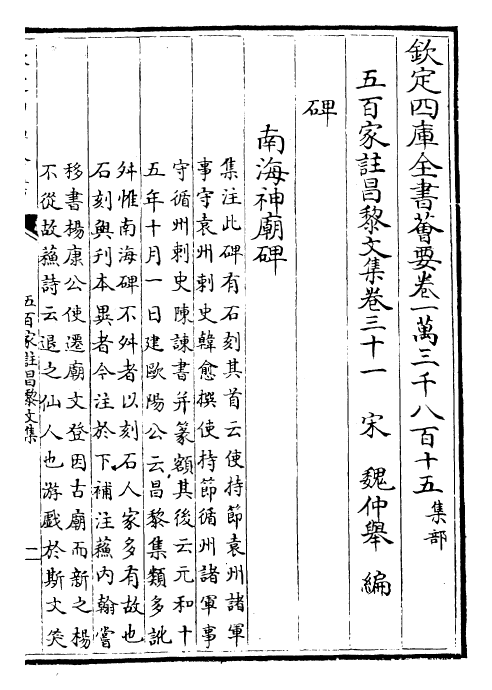 欽定四庫全書薈要卷一萬三千八百十五 集部
五百家註昌黎文集卷三十一 宋 魏仲舉 編
碑
南海神廟碑
集注此碑有石刻其首云使持節袁州諸軍
事守袁州刺史韓愈撰使持節循州諸軍事
守循州刺史陳諫書并篆額其後云元和十
五年十月一日建歐陽公云昌黎集類多訛
舛惟南海碑不舛者以刻石人家多有故也
石刻與刊本異者今注於下補注蘓内翰嘗
移書楊康公使遷廟文登因古廟而新之楊
不從故蘓詩云退之仙人也游戲於斯文筴
五百家註昌黎文集
二